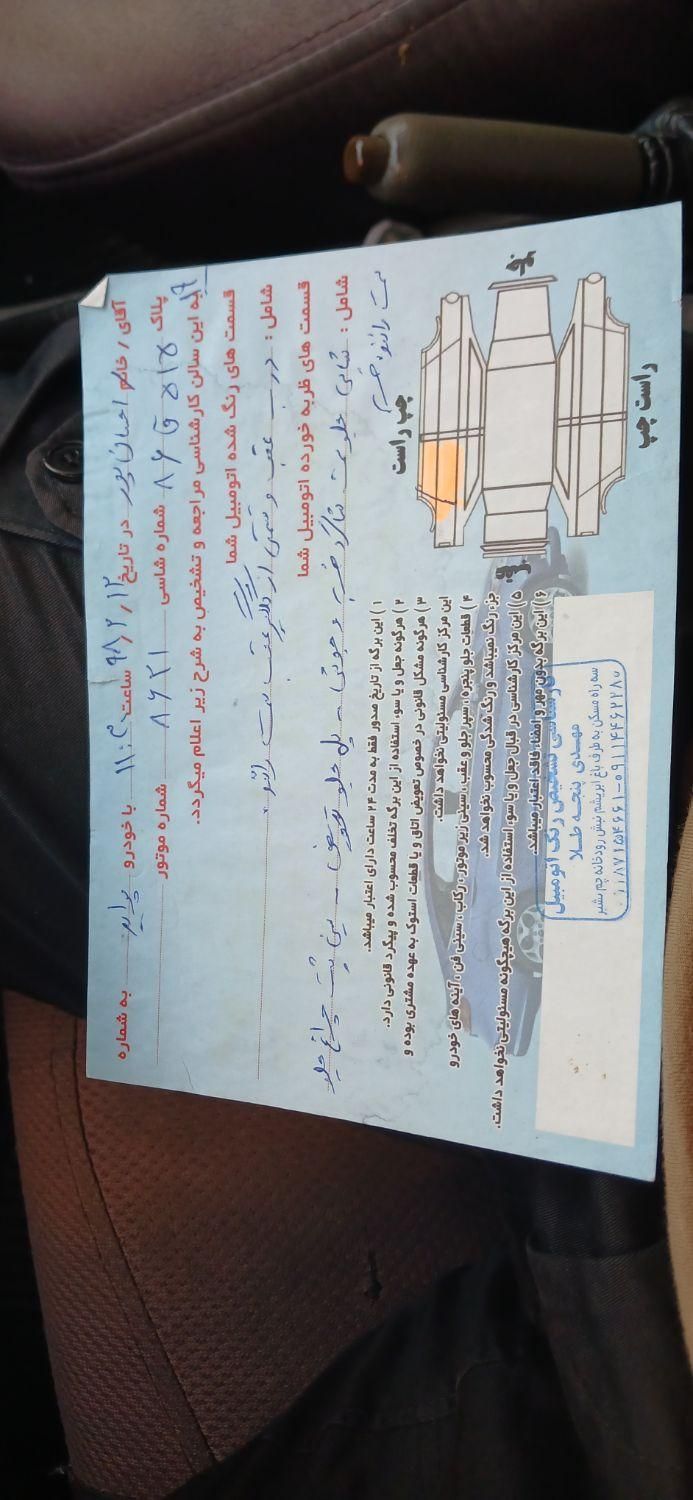 آقای / خانم احسان پور در تاریخ ۹۸/۲/۱۲ ساعت ۱۱:۳۰ با خودرو پراید به شماره
پلاک ۸۶ ق ۱۵۷ شماره شاسی شماره موتور ۸۶۲۱
به این سالن کارشناسی مراجعه و تشخیص به شرح زیر اعلام میگردد.
قسمت های رنگ شده اتومبیل شما
شامل : درب عقب و قسمتی از گلگیر عقب سمت راننده
قسمت های ظربه خورده اتومبیل شما
شامل : شاسی جلو سمت شاگرد ضربه و جوش - پل جلو تعویض - سینی پشت چراغ جلو
سمت راننده ضربه
چپ راست
راست چپ
۱) این برگه از تاریخ صدور فقط به مدت ۲۴ ساعت دارای اعتبار میباشد.
۲) هرگونه جعل و یا سوء استفاده از این برگه تخلف محسوب شده و پیگرد قانونی دارد.
۳) هرگونه مشکل قانونی در خصوص تعویض اتاق و یا قطعات استوک به عهده مشتری بوده و
این مرکز کارشناسی مسئولیتی نخواهد داشت.
۴) قطعات جلو پنجره ، سپر جلو و عقب ، سینی زیر موتور ، رکاب ، سینی فن ، آینه های خودرو
جزء رنگ نمیباشد و رنگ شدگی محسوب نخواهد شد.
۵) این مرکز کارشناسی در قبال جعل و یا سوء استفاده از این برگه هیچگونه مسئولیتی نخواهد داشت.
۶) این برگه بدون مهر و امضاء فاقد اعتبار میباشد.
کارشناسی تشخیص رنگ اتومبیل
مهدی پنجه طلا
سه راه مسکن به طرف باغ ابریشم نبش رودخانه چم بشیر